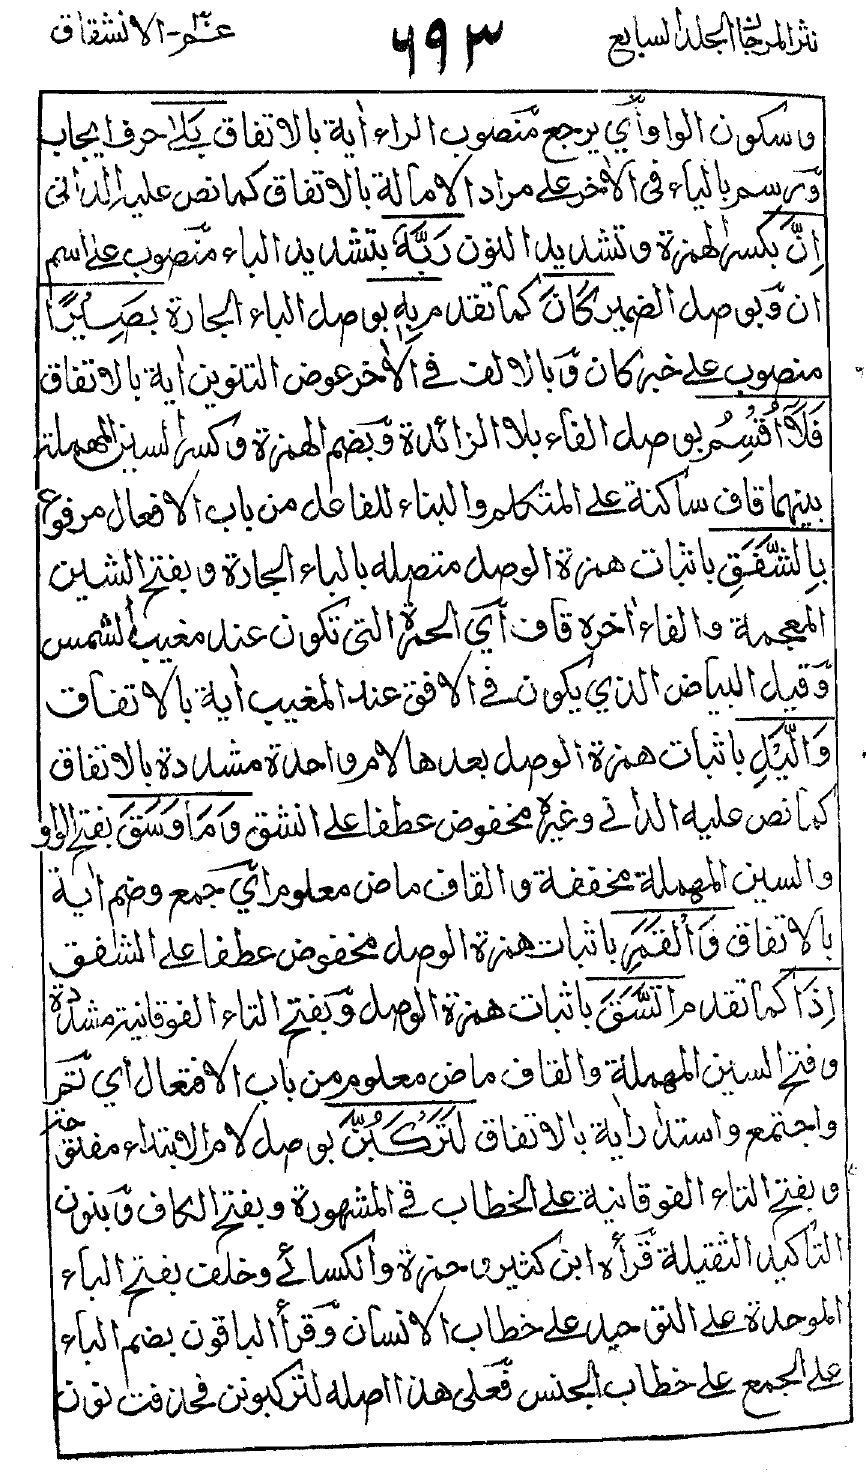 نثر المرجان الجلد السابع ٦٩٣ عم - الانشقاق
وسكون الواو أي يرجع منصوب الراء اية بالاتفاق بَلٰى حرف ايجاب
ورسم بالياء في الآخر على مراد الامالة بالاتفاق كما نص عليه الداني
اِنَّ بكسر الهمزة وتشديد النون رَبَّهٗ بتشديد الباء منصوب على اسم
ان وبوصل الضمير كَانَ كما تقدم بِهٖ بوصل الباء الجارة بَصِيْرًا
منصوب على خبر كان وبالالف في الآخر عوض التنوين اية بالاتفاق
فَلَآ اُقْسِمُ بوصل الفاء بلا الزائدة وبضم الهمزة وكسر السين المهملة
بينهما قاف ساكنة على المتكلم والبناء للفاعل من باب الافعال مرفوع
بِالشَّفَقِ باثبات همزة الوصل متصلة بالباء الجارة وبفتح الشين
المعجمة والفاء اخره قاف أي الحمرة التي تكون عند مغيب الشمس
وقيل البياض الذي يكون في الافق عند المغيب اية بالاتفاق
وَالَّيْلِ باثبات همزة الوصل بعدها لام واحدة مشددة بالاتفاق
كما نص عليه الداني وغيره مخفوض عطفا على الشفق وَمَا وَسَقَ بفتح الواو
والسين المهملة مخففة والقاف ماض معلوم أي جمع وضم اية
بالاتفاق وَالْقَمَرِ باثبات همزة الوصل مخفوض عطفا على الشفق
اِذَا كما تقدم اتَّسَقَ باثبات همزة الوصل وبفتح التاء الفوقانية مشددة
وفتح السين المهملة والقاف ماض معلوم من باب الافتعال أي تم
واجتمع واستدار اية بالاتفاق لَتَرْكَبُنَّ بوصل لام الابتداء مفتوحة
وبفتح التاء الفوقانية على الخطاب في المشهورة وبفتح الكاف وبنون
التأكيد الثقيلة قرأه ابن كثير وحمزة والكسائي وخلف بفتح الباء
الموحدة على التوحيد على خطاب الانسان وقرأ الباقون بضم الباء
على الجمع على خطاب الجنس فعلى هذا اصله لتركبونن فحذفت نون